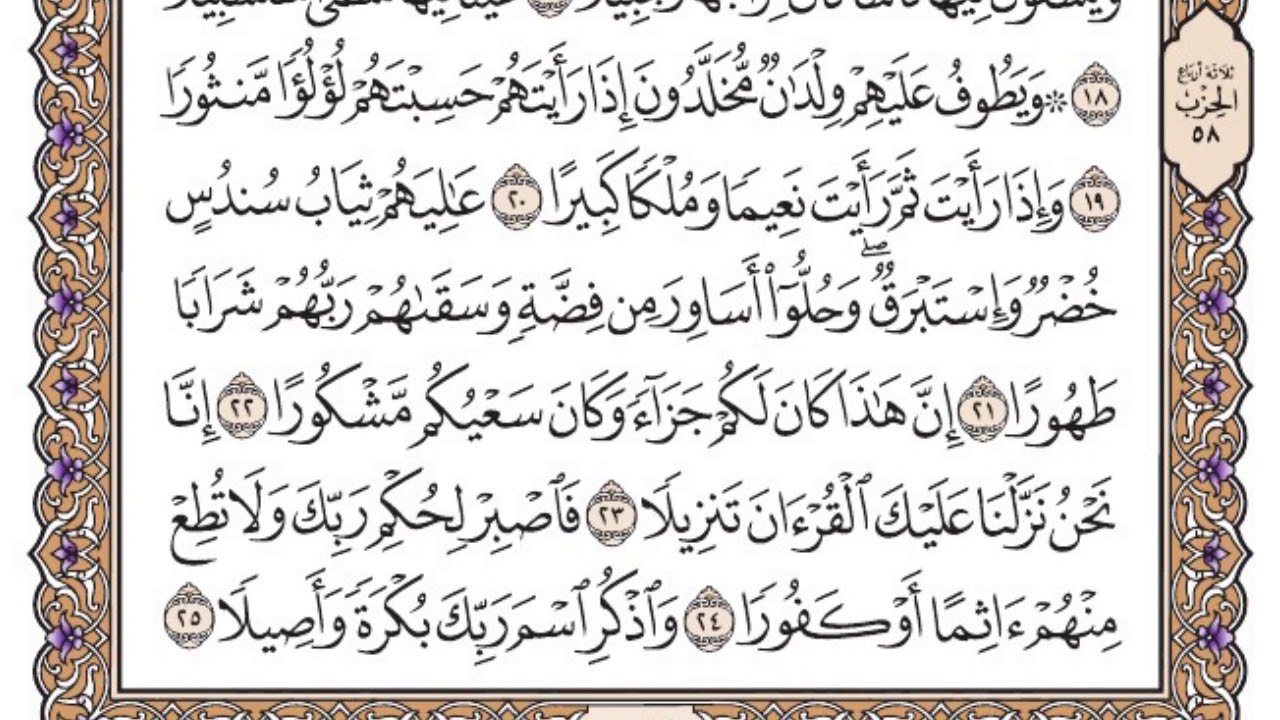 ۝١٨ ۞ وَيَطُوفُ عَلَيْهِمْ وِلْدَٰنٌ مُّخَلَّدُونَ إِذَا رَأَيْتَهُمْ حَسِبْتَهُمْ لُؤْلُؤًا مَّنثُورًا
۝١٩ وَإِذَا رَأَيْتَ ثَمَّ رَأَيْتَ نَعِيمًا وَمُلْكًا كَبِيرًا ۝٢٠ عَٰلِيَهُمْ ثِيَابُ سُندُسٍ
خُضْرٌ وَإِسْتَبْرَقٌ ۖ وَحُلُّوٓا۟ أَسَاوِرَ مِن فِضَّةٍ وَسَقَىٰهُمْ رَبُّهُمْ شَرَابًا
طَهُورًا ۝٢١ إِنَّ هَٰذَا كَانَ لَكُمْ جَزَآءً وَكَانَ سَعْيُكُم مَّشْكُورًا ۝٢٢ إِنَّا
نَحْنُ نَزَّلْنَا عَلَيْكَ ٱلْقُرْءَانَ تَنزِيلًا ۝٢٣ فَٱصْبِرْ لِحُكْمِ رَبِّكَ وَلَا تُطِعْ
مِنْهُمْ ءَاثِمًا أَوْ كَفُورًا ۝٢٤ وَٱذْكُرِ ٱسْمَ رَبِّكَ بُكْرَةً وَأَصِيلًا ۝٢٥
ثلاثة أرباع
الحِزْب
٥٨